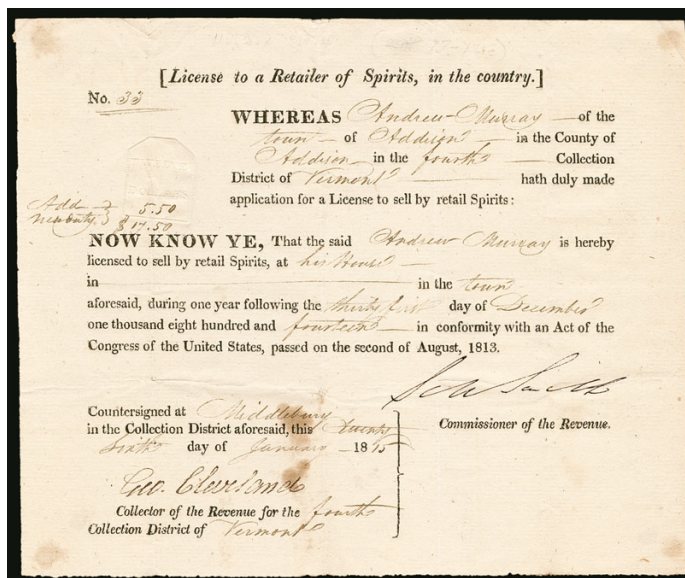 [License to a Retailer of Spirits, in the country.]
No. 33
WHEREAS Andrew Murray of the
town of Addison in the County of
Addison in the fourth Collection
District of Vermont hath duly made
application for a License to sell by retail Spirits:
Add 5.50
new duty $ 17.50
NOW KNOW YE, That the said Andrew Murray is hereby
licensed to sell by retail Spirits, at his House
in in the town
aforesaid, during one year following the thirty first day of December
one thousand eight hundred and fourteen in conformity with an Act of the
Congress of the United States, passed on the second of August, 1813.
Commissioner of the Revenue.
Countersigned at Middlebury
in the Collection District aforesaid, this twenty
sixth day of January 1815
Geo. Cleveland
Collector of the Revenue for the fourth
Collection District of Vermont